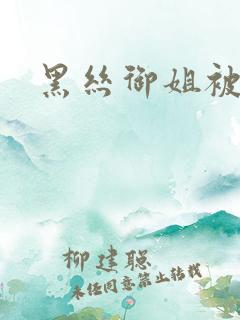 黑丝御姐被
柳建聪
未经同意禁止转载